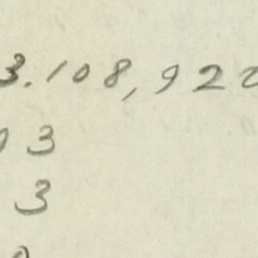 3.108,922
3
3